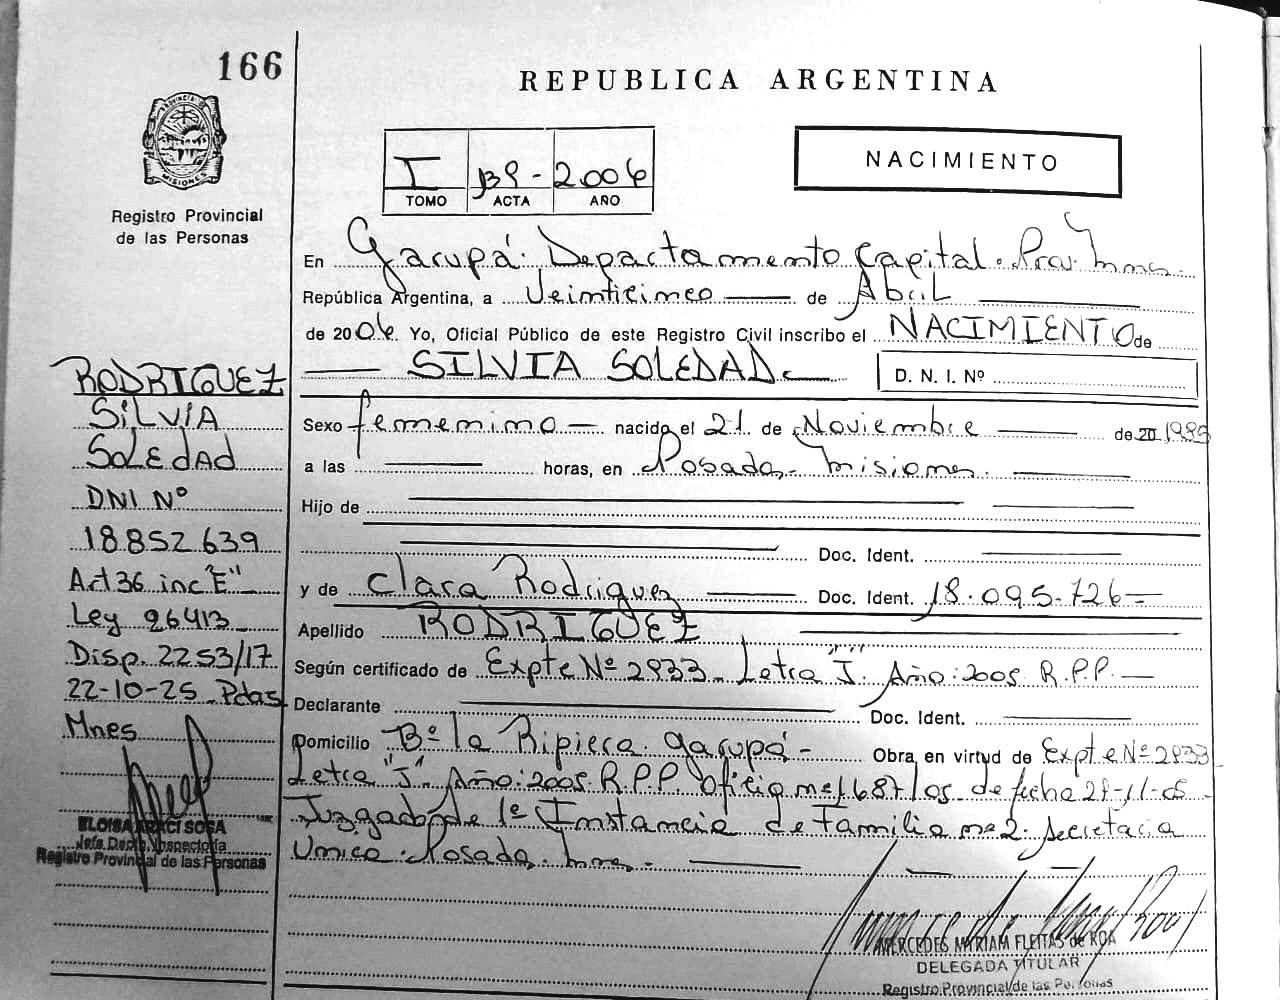 166
REPUBLICA ARGENTINA
PROVINCIA DE
MISIONES
Registro Provincial
de las Personas
NACIMIENTO
I 139 - 2006
TOMO ACTA AÑO
En Garupá. Departamento Capital. Prov. Mnes.
República Argentina, a Veinticinco de Abril
de 2006. Yo, Oficial Público de este Registro Civil inscribo el NACIMIENTO de
SILVIA SOLEDAD.
D. N. I. Nº
Sexo femenino nacido el 21 de Noviembre de 20 1989
a las horas, en Posadas. Misiones.
Hijo de
Doc. Ident.
y de Clara Rodriguez Doc. Ident. 18.095.726
Apellido RODRIGUEZ
Según certificado de Expte Nº 2933 Letra "J". Año: 2005 R.P.P.
Declarante Doc. Ident.
Domicilio Bº la Ripiera. Garupá - Obra en virtud de Expte Nº 2933
Letra "J". Año: 2005. R.P.P. Oficio nº 1687/05 de fecha 29-11-05
Juzgado de 1ª Instancia de Familia nº 2. Secretaria
Unica. Posadas. Mnes.
MERCEDES MYRIAM FLEITAS de ROA
DELEGADA TITULAR
Registro Provincial de las Personas
RODRIGUEZ
SILVIA
SOLEDAD
DNI Nº
18.852.639
Art 36 inc "E"
Ley 26413
Disp. 2253/17
22-10-25 Pdas
Mnes
ELOISA ARACI SOSA
Jefa Depto. Inspectoría
Registro Provincial de las Personas